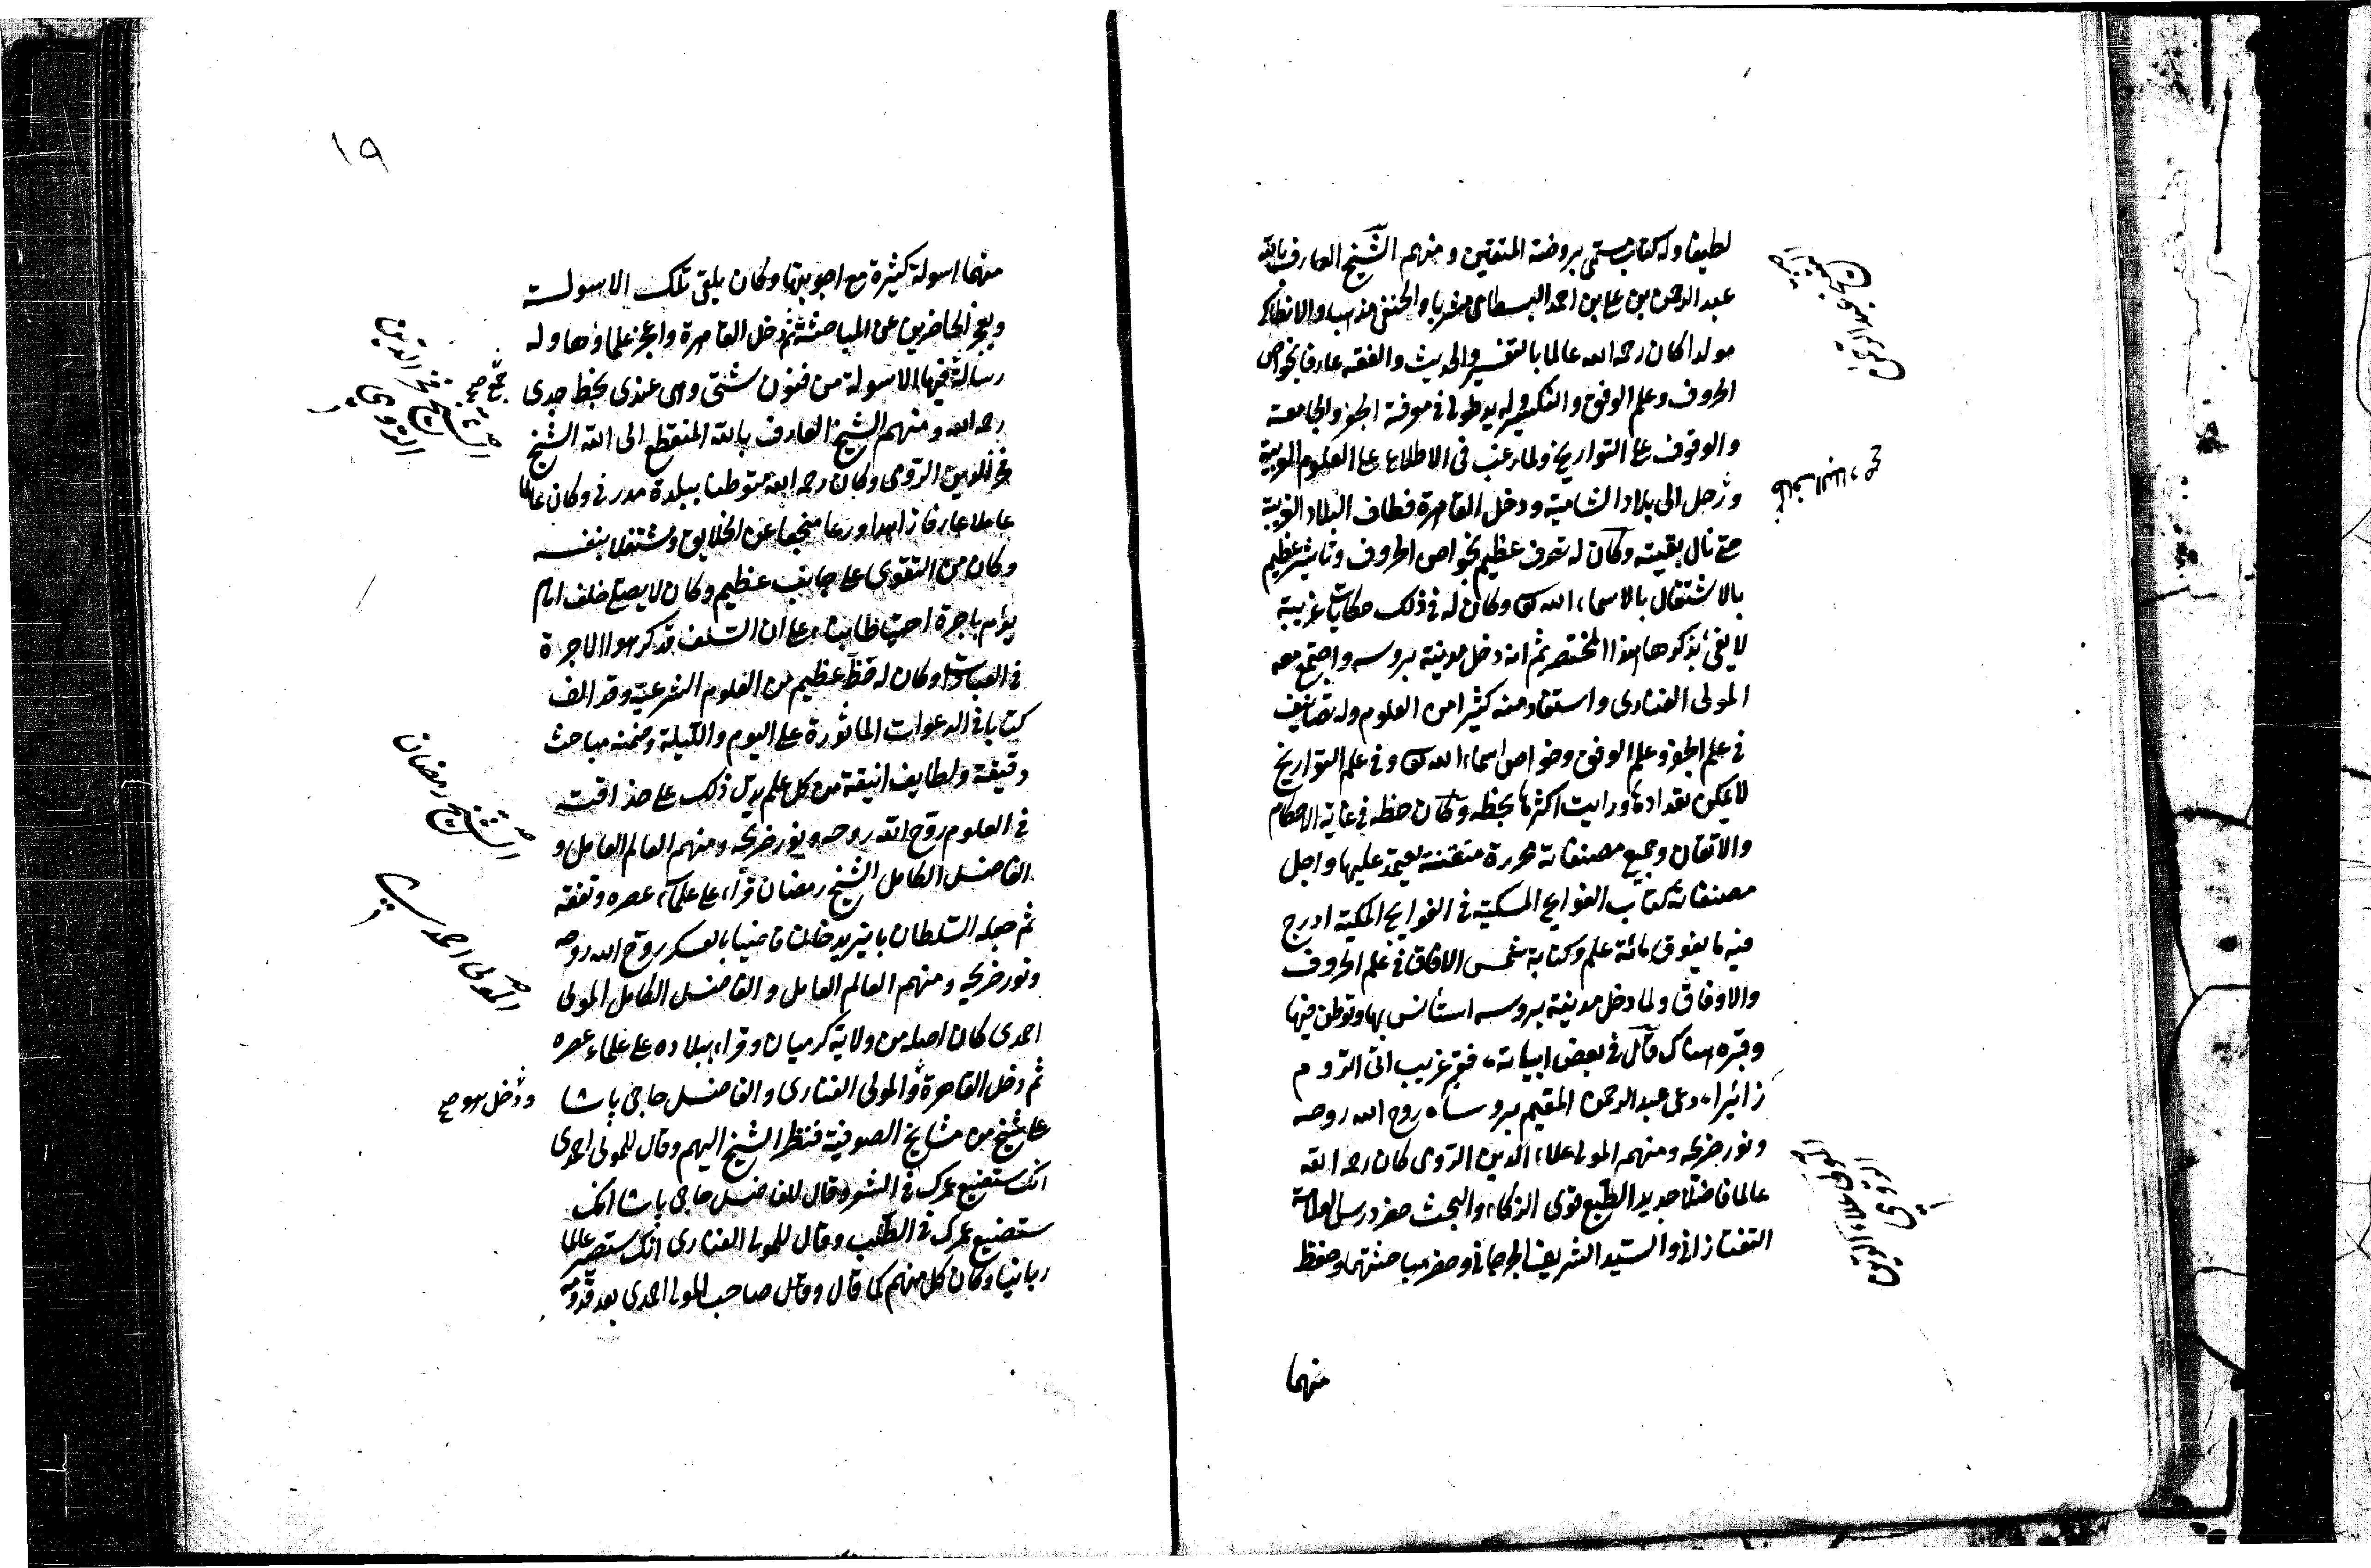 لطيفا وله كتاب مسمى بروضة المتقين ومنهم الشيخ العارف بالله
عبد الرحمن بن على بن احمد البسطامى مشربا والحنفى مذهبا والانطاكى
مولدا كان رحمه الله عالما بالتفسير والحديث والفقه عارفا بخواص
الحروف وعلم الوفق والتكسير وله يد طولى فى معرفة الجفر والجامعة
والوقوف على التواريخ ولما رغب فى الاطلاع على العلوم الغريبة
رحل الى بلاد الشامية ودخل القاهرة فطاف البلاد الغربية
حتى نال بغيته وكان له تصرف عظيم بخواص الحروف وتاثير عظيم
بالاشتغال بالاسماء الله تعالى وكان له فى ذلك حكايات غريبة
لا يفى بذكرها هذا المختصر ثم انه دخل مدينة بروسه واجتمع معه
المولى الفنارى واستفاد منه كثيرا من العلوم وله تصانيف
فى علم الجفر وعلم الوفق وخواص اسماء الله تعالى وفى علم التواريخ
لا يمكن تعدادها ورايت اكثرها بخطه وكان خطه فى غاية الاحكام
والاتقان وجميع مصنفاته محررة متقنة يعتمد عليها واجل
مصنفاته كتاب الفوايح المسكية فى الفواتح المكية ادرج
فيه ما يفوق مائة علم وكتابه شمس الافاق فى علم الحروف
والاوفاق ولما دخل مدينة بروسه استأنس بها وتوطن فيها
وقبره هناك قال فى بعض ابياته فقير غريب اتى الروم
زائرا دعى عبد الرحمن المقيم بروسا روح الله روحه
ونور ضريحه ومنهم المولى علاء الدين الرومى كان رحمه الله
عالما فاضلا جديد الطبع قوى الذكاء والبحث حضر درس العلامة
التفتازانى والسيد الشريف الجرجانى وحضر مباحثتهما وحفظ
منهما
١٩
منهما اسولة كثيرة مع اجوبتها وكان يلقى تلك الاسولة
ويعجز الحاضرين عن المباحثة ثم دخل القاهرة واعجز علماؤها وله
رسالة فيها الاسولة من فنون شتى وهى عندى بخط جدى
رحمه الله ومنهم الشيخ العارف بالله المنقطع الى الله الشيخ
فخر الدين الرومى وكان رحمه الله متوطنا ببلدة مدرنى وكان عالما
عاملا عارفا زاهدا ورعا منجمعا عن الخلايق ومشتغلا بنفسه
وكان من التقوى على جانب عظيم وكان لا يصلى خلف امام
يؤم باجرة احتياطا بناء على ان السلف قد كرهوا الاجرة
فى العبادات وكان له حظ عظيم من العلوم الشرعية وقد الف
كتابا فى الدعوات الماثورة على اليوم والليلة وضمنه مباحث
دقيقة ولطايف انيقة من كل علم يدل ذلك على حذاقته
فى العلوم روح الله روحه ونور ضريحه ومنهم العالم العامل و
الفاضل الكامل الشيخ رمضان قراء على علماء عصره وتفقه
ثم جعله السلطان بايزيد خان قاضيا بالعسكر روح الله روحه
ونور ضريحه ومنهم العالم العامل والفاضل الكامل المولى
احمدى كان اصله من ولاية كرميان وقراء ببلاده على علماء عصره
ثم دخل القاهرة والمولى الفنارى والفاضل حاجى باشا
على شيخ من مشايخ الصوفية فنظر الشيخ اليهم وقال للمولى احمدى
انك ستضيع عمرك فى الشعر وقال للفاضل حاجى باشا انك
ستضيع عمرك فى الطب وقال للمولى الفنارى انك ستصير عالما
ربانيا وكان كل منهم كما قال وقال صاحب المولى احمدى بعد قدومه
الشيخ فخر الدين
الرومى
الشيخ رمضان
المولى احمدى
ودخل هو صح